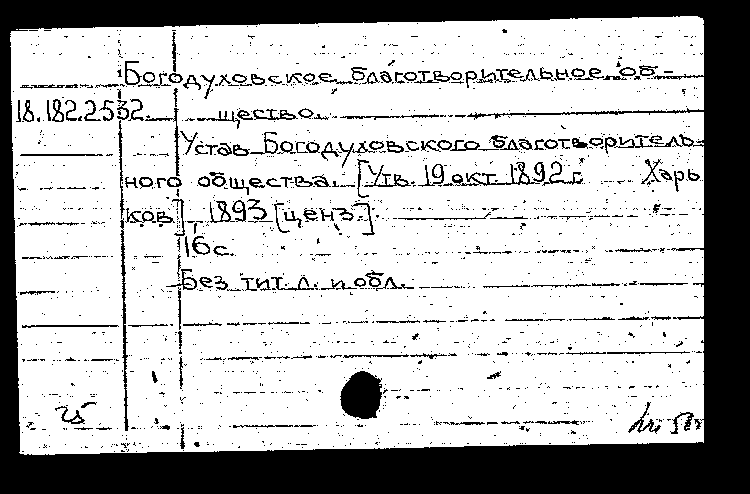 Богодуховское благотворительное об-
18.182.2532. щество.
Устав Богодуховского благотворитель-
ного общества. [Утв. 19 окт. 1892 г. Харь
ков], 1893 [ценз.].
16 с.
Без тит. л. и обл.